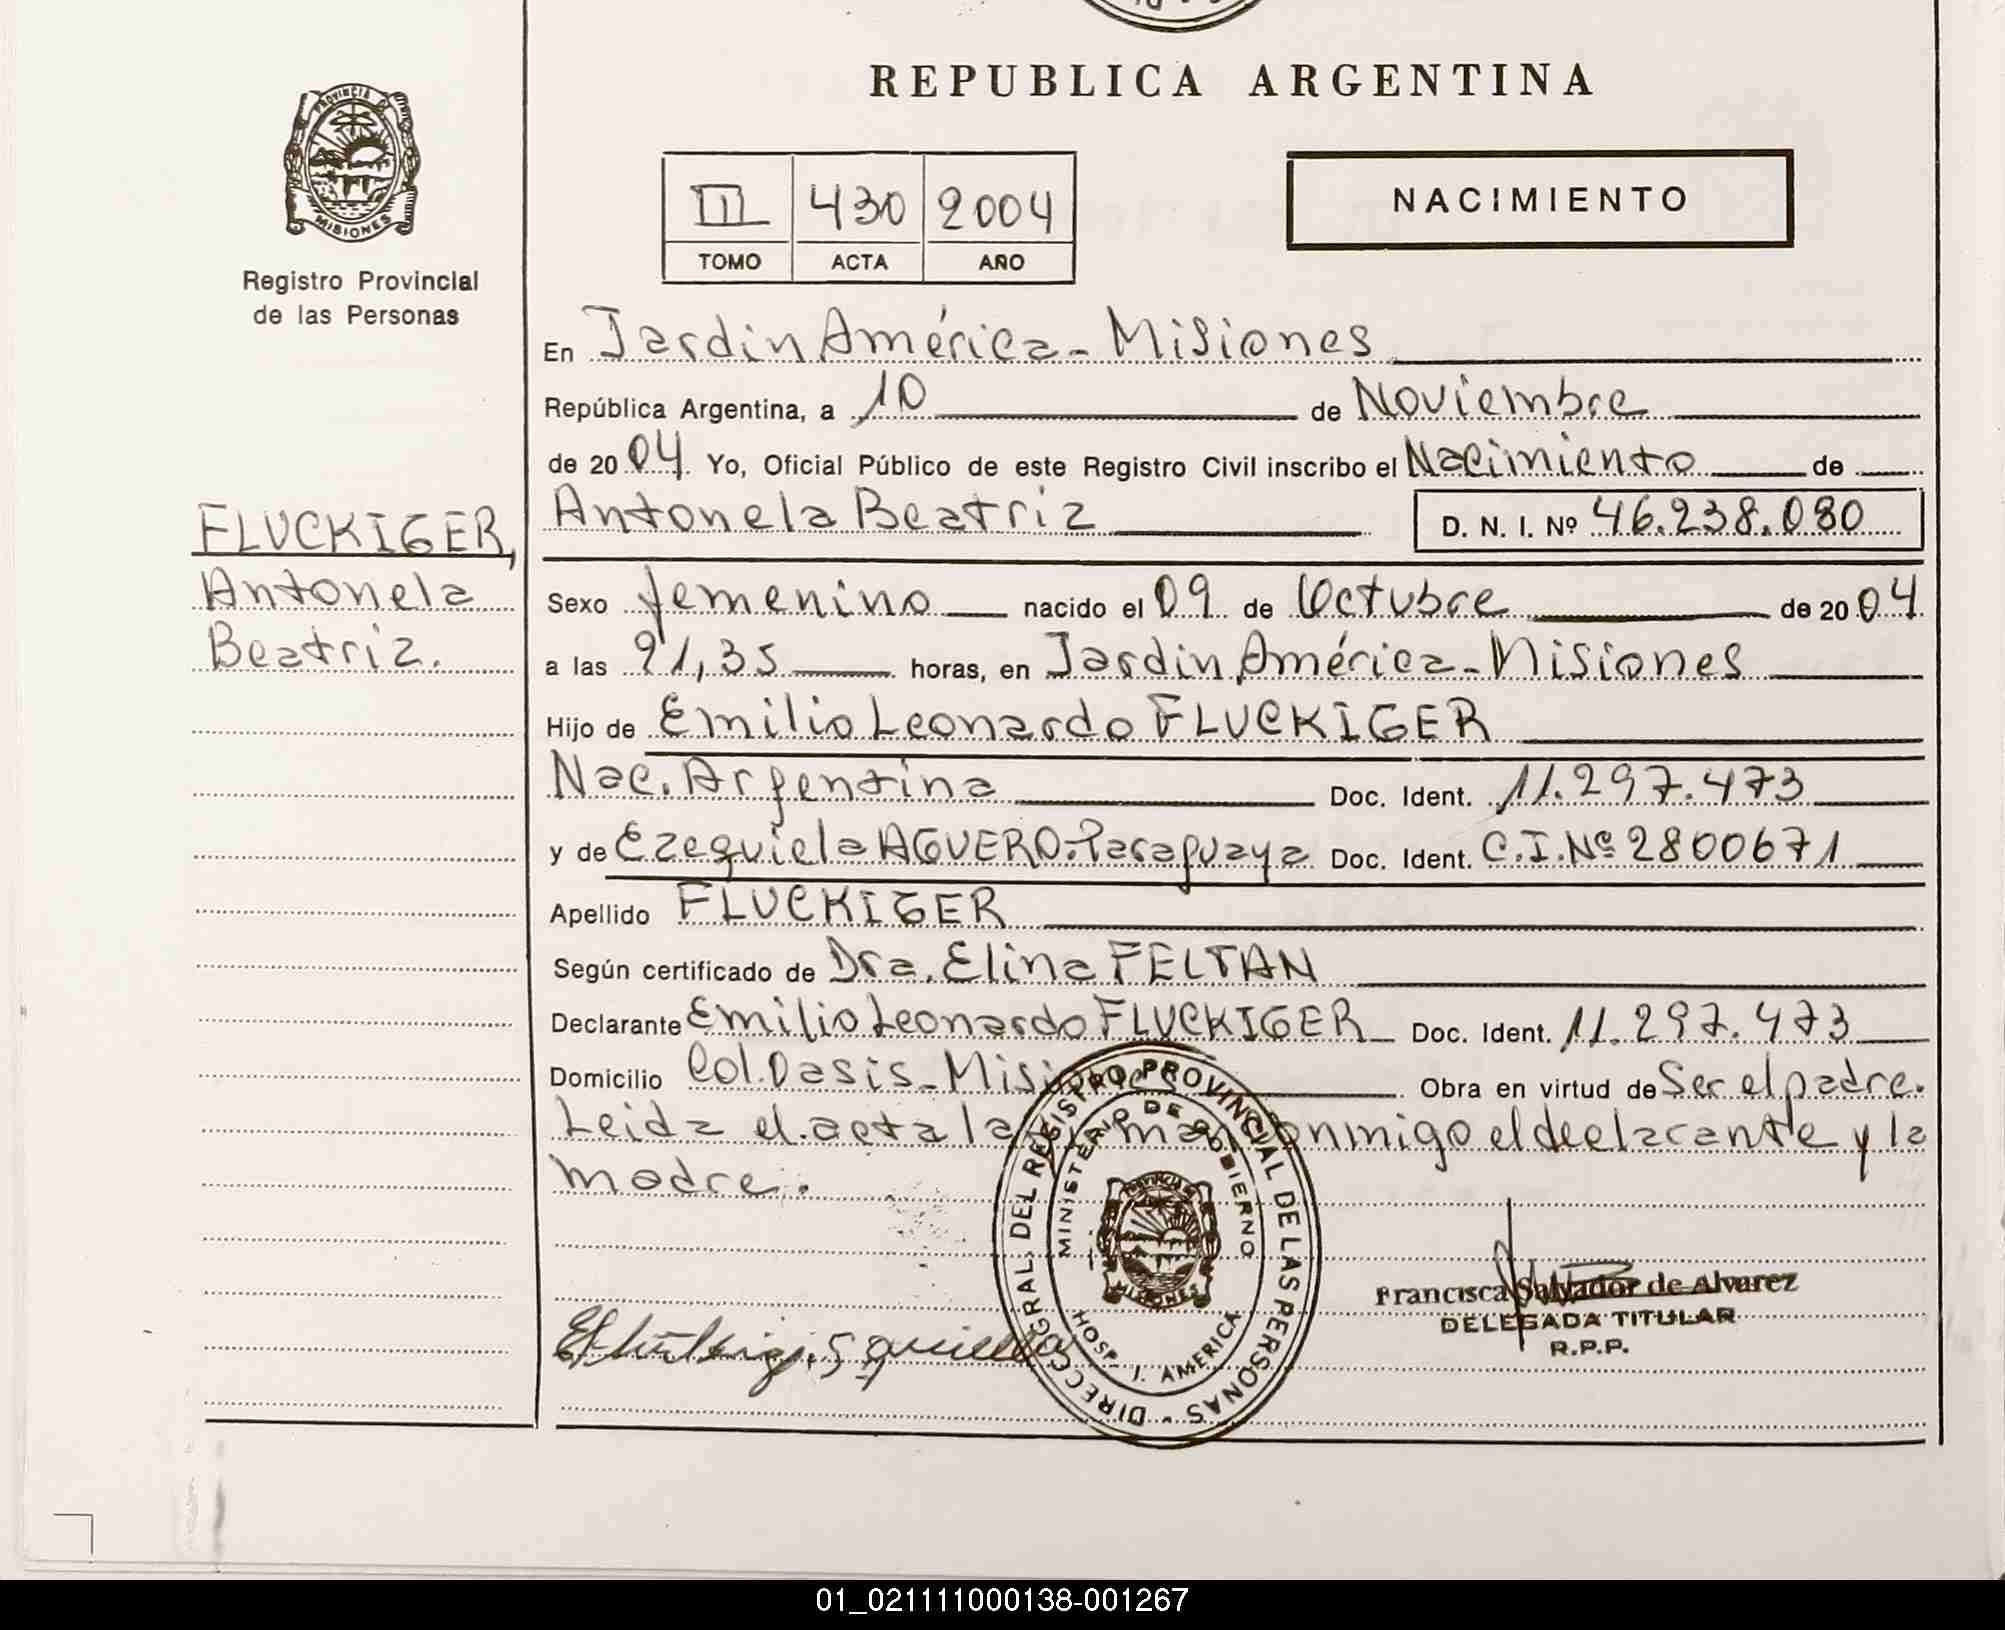 REPUBLICA ARGENTINA
PROVINCIA DE
MISIONES
Registro Provincial
de las Personas
III 430 2004
TOMO ACTA AÑO
NACIMIENTO
En Jardin América - Misiones
República Argentina, a 10 de Noviembre
de 2004. Yo, Oficial Público de este Registro Civil inscribo el Nacimiento de
Antonela Beatriz D. N. I. Nº 46.238.080
FLUCKIGER,
Antonela
Beatriz.
Sexo femenino nacido el 09 de Octubre de 2004
a las 21,35 horas, en Jardin América - Misiones
Hijo de Emilio Leonardo FLUCKIGER
Nac. Argentina Doc. Ident. 11.297.473
y de Ezequiela AGUERO - Paraguaya Doc. Ident. C.I. Nº 2800671
Apellido FLUCKIGER
Según certificado de Dra. Elina FELTAN
Declarante Emilio Leonardo FLUCKIGER Doc. Ident. 11.297.473
Domicilio Col. Oasis - Misiones Obra en virtud de Ser el padre.
Leida el acta la conmigo el declarante y la
madre.
DIRECC. GRAL. DEL REGISTRO PROVINCIAL DE LAS PERSONAS
MINISTERIO DE GOBIERNO
MISIONES
HOSP. J. AMERICA
Francisca Salvador de Alvarez
DELEGADA TITULAR
R.P.P.
01_021111000138-001267